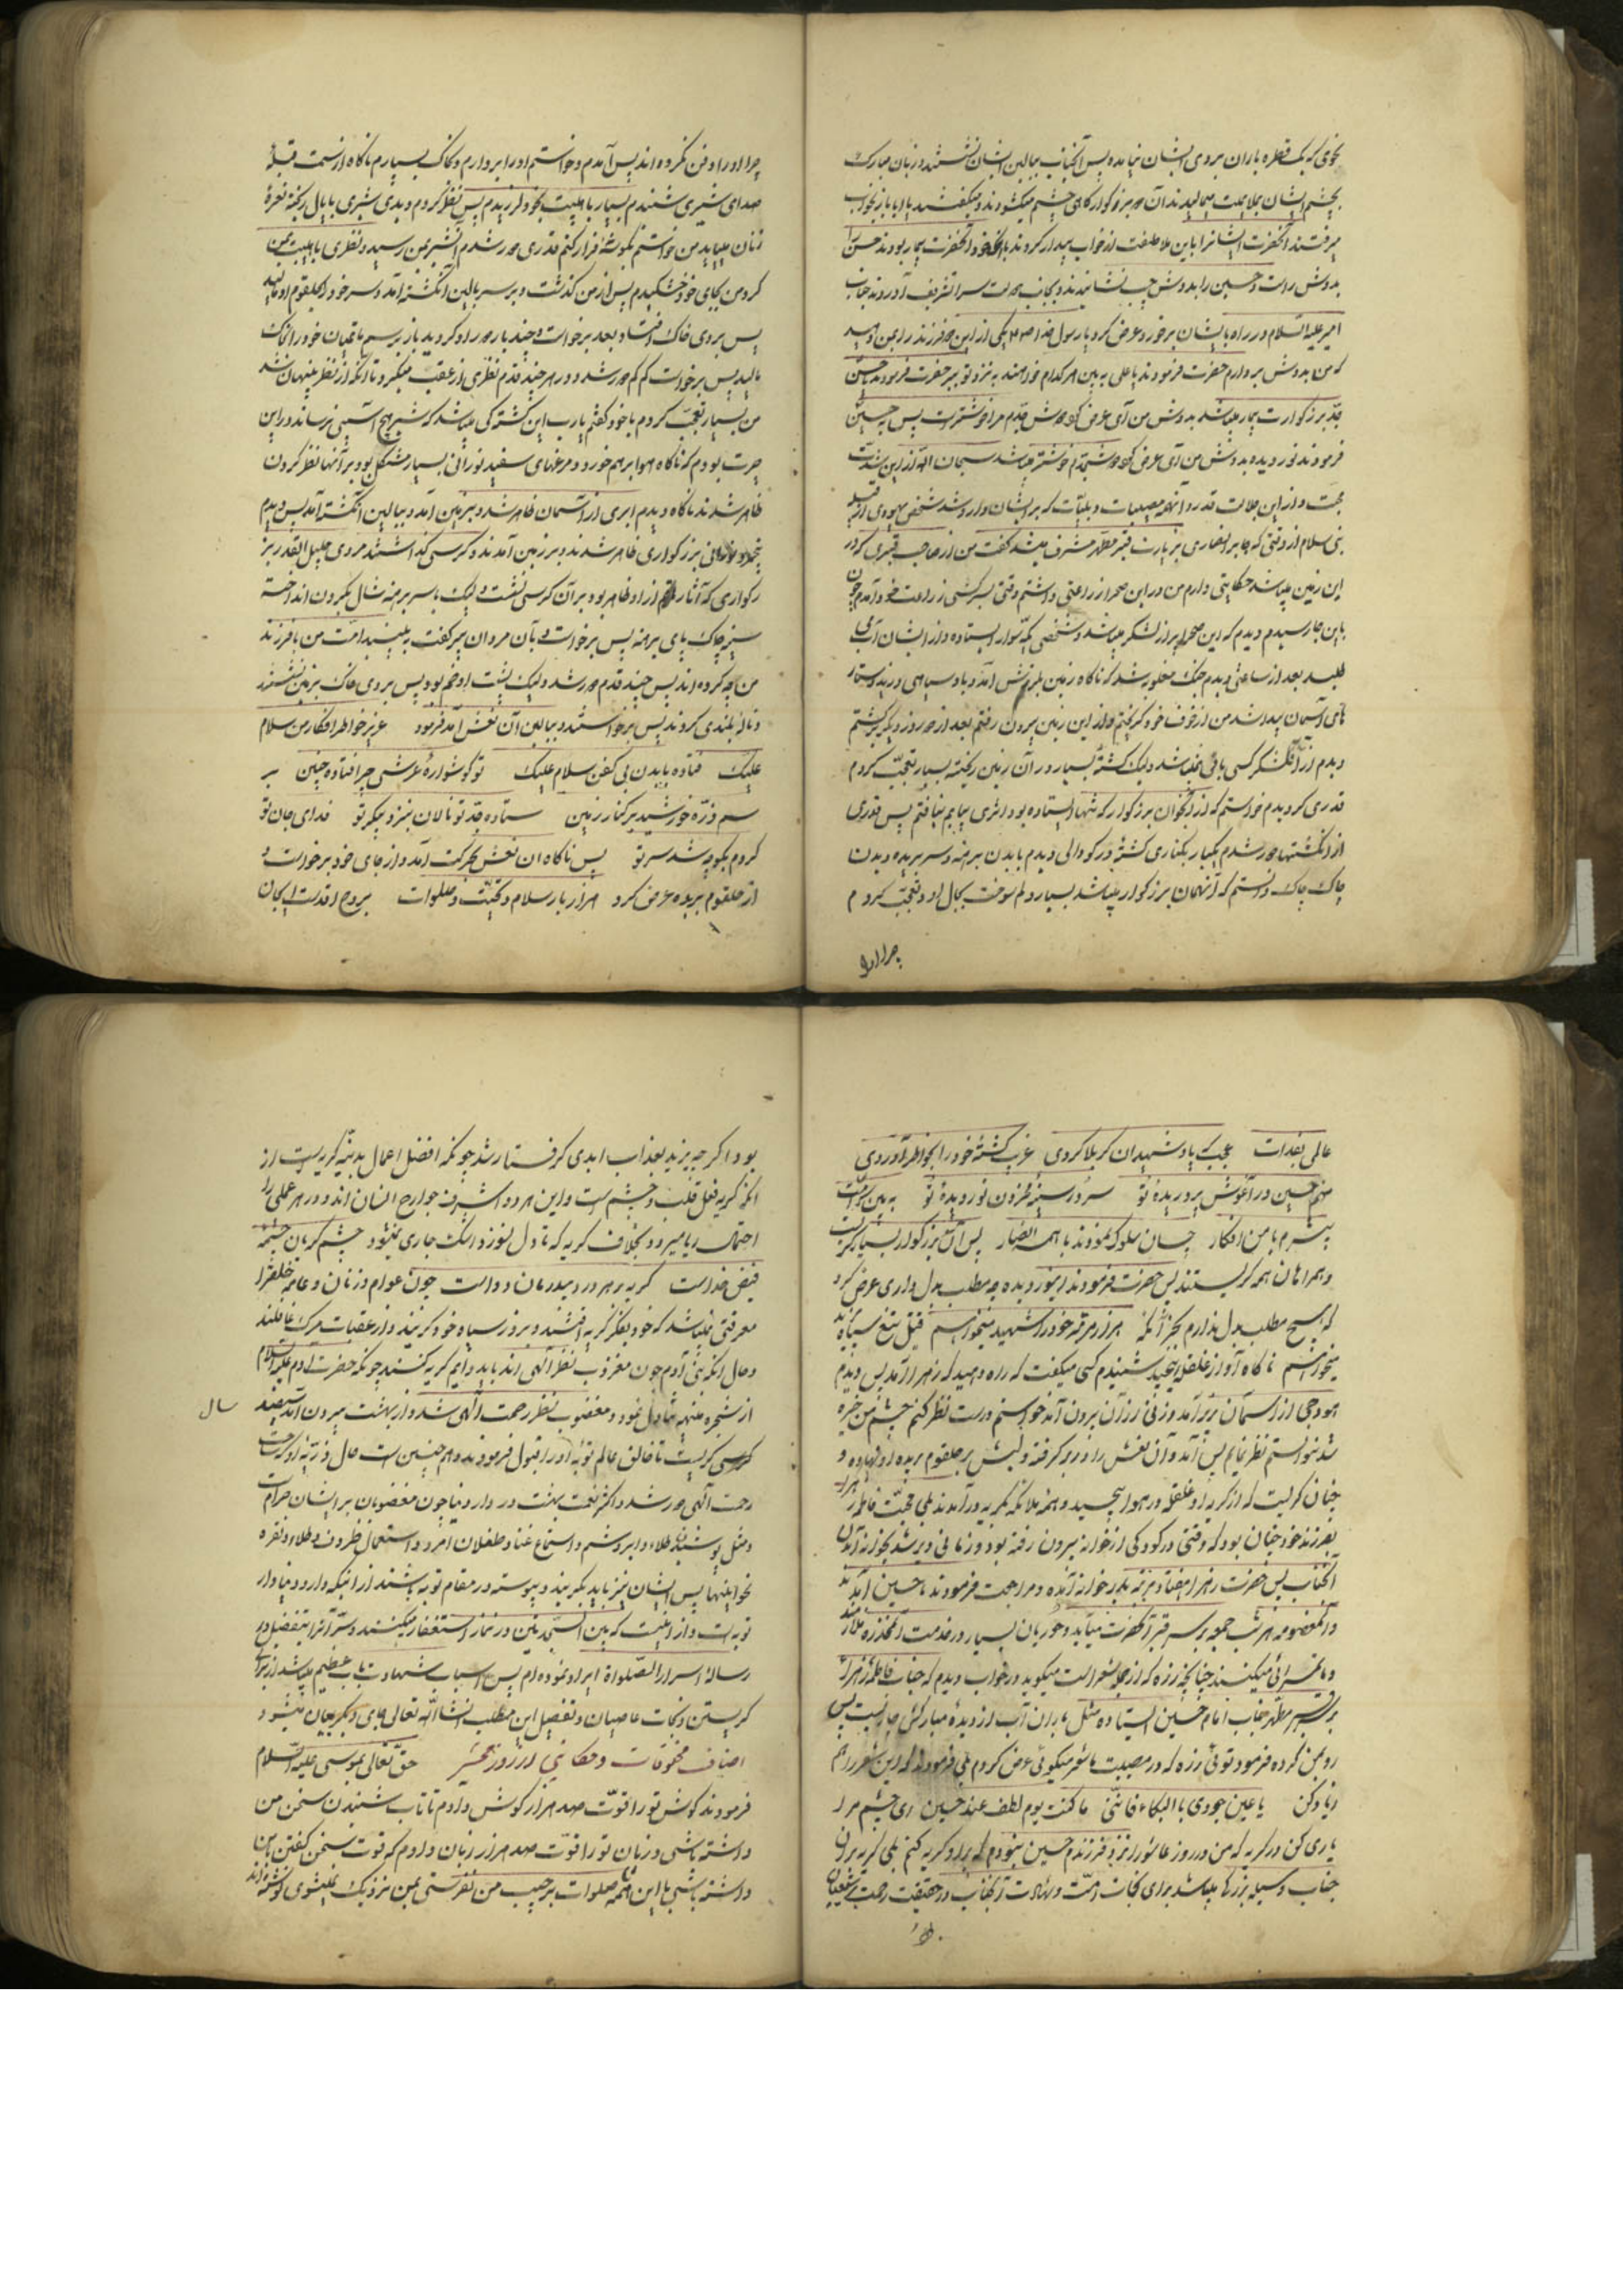 بخوی که یک قطره باران بروی ایشان نیامده پس آنجناب ببالین ایشان نشستند و زبان مبارک
بچشم ایشان بملایمت میمالیدند آن دو بزرکوار کاهی چشم میکشودند و میکفتند یا ابا باز بخواب
میرفتند آنحضرت ایشانرا باین ملاطفت از خواب بیدار کردند با آنکه خود آنحضرت بیمار بودند حسن را
بدوش راست و حسین را بدوش چپ نشانیدند و بجانب دولت سرا تشریف آوردند جناب
امیر علیه السلام در راه بایشان برخورد عرض کرد یا رسول خدا یکی از این دو فرزند را بمن دهید
که من بدوش بردارم حضرت فرمودند یا علی به بین هر کدام خواهند به نزد تو ببر حضرت فرمودند یا حسن
جد بزرکوارت بیمار میباشد بدوش من آی عرض کرد دوش جدم مرا خوشتر است پس به حسین
فرمودند نور دیده بدوش من آی عرض کرد دوش جدم خوشتر میباشد سبحان الله از این شدت
محبت و از این جلالت قدر و آنهمه مصیبات و بلیات که بر ایشان وارد شد شخصی یهودی از قبیله
بنی سلام از وقتی که جابر انصاری بزیارت قبر مطهر مشرف میشد کفت من از صاحب قبری که در
این زمین میباشد حکایتی دارم من در این صحرا زراعتی داشتم وقتی بسرکشی زراعت خود آمدم چون
باین جا رسیدم دیدم که این صحرا پر از لشکر میباشد و شخصی یکه سوار ایستاده و از ایشان آب می
طلبد بعد از ساعتی دیدم جنک مغلوبه شد که ناکاه زمین بلرزش آمد و باد سیاهی وزید و ستاره
های آسمان پیدا شد من از خوف خود کریختم و از این زمین بیرون رفتم بعد از دو روز دیکر برکشتم
دیدم از آن لشکر کسی باقی نمیباشد و لیک کشته بسیار در آن زمین ریخته بسیار تعجب کردم
قدری کردیدم خواستم که از آنجوان بزرکوار که تنها ایستاده بود اثری بیابم نیافتم پس قدری
از آن کشتها دور شدم یکبار بکناری کشته در کودالی دیدم با بدن برهنه و سر بریده و بدن
چاک چاک دانستم که آن همان بزرکوار میباشد بسیار دلم سوخت بحال او و تعجب کردم
چرا او را
چرا او را دفن نکرده اند پس آمدم و خواستم او را بردارم و بخاک بسپارم ناکاه از سمت قبله
صدای شیری شنیدم بسیار با هیبت بخود لرزیدم پس نظر کردم و دیدم شیری با یال ریخته نعره
زنان میاید من خواستم بکوشه فرار کنم قدری دور شدم آنشیر بمن رسید و نظری با هیبت بمن
کرد من بجای خود خشکیدم پس از من کذشت و بر سر بالین آنکشته آمد و سر خود را بحلقوم او مالید
پس بروی خاک افتاد و بعد برخواست و چند بار دور او کردید باز برسم ماتمیان خود را بخاک
مالید پس برخواست کم کم دور شد و در هر چند قدم نظری از عقب میکرد تا آنکه از نظر پنهان شد
من بسیار تعجب کردم با خود کفتم یا رب این کشته کی میباشد که شیر هیچ آسیبی نرساند در این
حیرت بودم که ناکاه هوا برهم خورد و مرغهای سفید نورانی بسیار مشکل بود بر آنها نظر کردن
ظاهر شدند ناکاه دیدم ابری از آسمان ظاهر شد و بزمین آمد و ببالین آنکشته آمد پس دیدم
بزرکواری ظاهر شدند و بر زمین آمدند و کرسی کذاشتند مردی جلیل القدر بز
رکواری که آثار از او ظاهر بود بر آن کرسی نشست و لیک با سر برهنه شال بکردن انداخته
سینه چاک پای برهنه پس برخواست و بآن مردان پیر کفت به بینید امت من با فرزند
من چه کرده اند پس چند قدم دور شد و لیک پشت او خم بود پس بروی خاک بزمین نشستند
و ناله بلندی کردند پس برخواستند و ببالین آن نعش آمد فرمود عزیز خواطر افکار من سلام
علیک فتاده با بدن بی کفن سلام علیک تو کوشواره عرشی چرا فتاده چنین بر
سم ذره خورشید بر کنار زمین ستاده جد تو نالان بنزد پیکر تو فدای جان تو
کردم بکو چه شد سر تو پس ناکاه آن نعش بحرکت آمد و از جای خود برخواست و
از حلقوم بریده عرض کرد هزار بار سلام و تحیت و صلوات بروح اقدست ای جان
عالمی بفدات عجب که یاد شهیدان کربلا کردی غریب کشته خود را بخواطر آوردی
منم حسین در آغوش پروریده تو سرور سینه محزون نور دیده تو به بین امت
بیشرم با من افکار چسان سلوک نمودند با همه انصار پس آن بزرکوار بسیار کریست
و همراهان همه کریستند پس حضرت فرمودند ای نور دیده چه مطلب بدل داری عرض کرد
که هیچ مطلب بدل ندارم بجز آنکه هزار مرتبه خود را شهید میخواهم قتیل تیغ سپاه یزید
میخواهم ناکاه آواز غلغله پیچید شنیدم کسی میکفت که راه دهید که زهرا آمد پس دیدم
هودجی از آسمان بزیر آمد و زنی از آن بیرون آمد خواستم درست نظر کنم چشم من خیره
شد نتوانستم نظر نمایم پس آمد و آن نعش را در بر کرفت و لبش بر حلقوم بریده او نهاده و
چنان کریست که از کریه او غلغله در هوا پیچید و همه ملائکه بکریه در آمدند بلی محبت فاطمه زهرا
بفرزند خود چنان بود که وقتی در کودکی از خوانه بیرون رفته بود و زمانی دیر شد بخوانه آمدن
آنجناب پس حضرت زهرا هفتاد مرتبه بدر خوانه آمده و مراجعت فرمودند تا حسین آمد
و آنمعصومه هر شب جمعه بر سر قبر آنحضرت میآید و حوریان بسیار در خدمت آنمخدره ملازمند
و نوحه سرائی میکنند چنانچه زره که از جمله شعرا است میکوید در خواب دیدم که جناب فاطمه زهرا
بر سر قبر مطهر جناب امام حسین ایستاده مثل باران آب از دیده مبارکش جاریست پس
رو بمن کرده فرمود توئی زره که در مصیبت ما شعر میکوئی عرض کردم بلی فرمودند که این شعر را هم
زیاد کن یا عین جودی بالبکاء فاننی ما کنت یوم الطف عند حسین ای چشم مرا
یاری کن در کریه که من در روز عاشورا نزد فرزندم حسین نبودم که براو کریه کنم بلی کریه بر آن
جناب وسیله بزرکها میباشد برای نجات امت و شهادت آنجناب در حقیقت رحمت بر شیعیان
بود
بود اکر چه یزید بعذاب ابدی کرفتار شد چونکه افضل اعمال بدنیه کریه است از
آنکه کریه فعل قلب و چشم است و این هر دو اشرف جوارح انسان اند و در هر عملی را
احتمال ریا میرود بخلاف کریه که تا دل نسوزد اشک جاری نمیشود چشم کریان چشمه
فیض خداست کریه بر هر درد بیدرمان دواست چون عوام و زنان و عامه خلق را
معرفتی نمیباشد که خود بفکر کریه افتند و بروز سیاه خود کریند و از عقبات مرک غافلند
و حال آنکه بنی آدم چون مغضوب نظر آلهی اند باید دایم کریه کنند چونکه حضرت آدم علیه السلام
از شجره منهیه تناول نمود و مغضوب نظر رحمت آلهی شد و از بهشت بیرون آمد سیصد
سال
کریست تا خالق عالم توبه او را قبول فرمودند و هم چنین است حال ذریه او که از ساحت
رحمت آلهی دور شد و اکثر نعمت بهشت در دار دنیا چون مغضوبان بر ایشان حرام است
و مثل پوشیدن طلا و ابریشم و استماع غنا و طفلان امرد و استعمال ظروف طلا و نقره
نحو اینها پس ایشان نیز باید بکریند و پیوسته در مقام توبه باشند از آنیکه دار دنیا دار
توبه است و از اینست که بین السجدتین در نماز استغفار میکنند و سر آنرا بتفصیل در
رساله اسرار الصلواة ایراد نموده ام پس اسباب شهادت باب عظیم میباشد از برای
کریستن و نجات عاصیان و تفصیل این مطلب انشاالله تعالی جای دیکر بیان میشود
اصناف مخلوقات و حکایتی از روز محشر حق تعالی بموسی علیه السلام
فرمودند کوش تو را قوت صد هزار کوش دادم تا تاب شنیدن سخن من
داشته باشی و زبان تو را قوت صد هزار زبان دادم که قوت سخن کفتن با من
داشته باشی با این همه تا صلوات بر حبیب من نفرستی بمن نزدیک نمیشوی